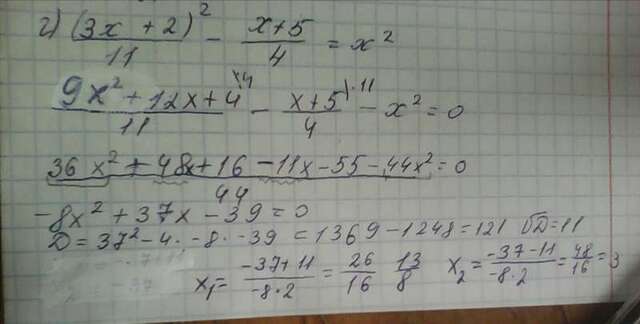 г) (3x + 2)² / 11 - x+5 / 4 = x²
9x² + 12x + 4 \·4 / 11 - x+5 \·11 / 4 - x² = 0
36x² + 48x + 16 - 11x - 55 - 44x² / 44 = 0
-8x² + 37x - 39 = 0
D = 37² - 4 · -8 · -39 = 1369 - 1248 = 121 √D = 11
x₁ = -37+11 / -8·2 = 26/16 13/8 x₂ = -37-11 / -8·2 = 48/16 = 3